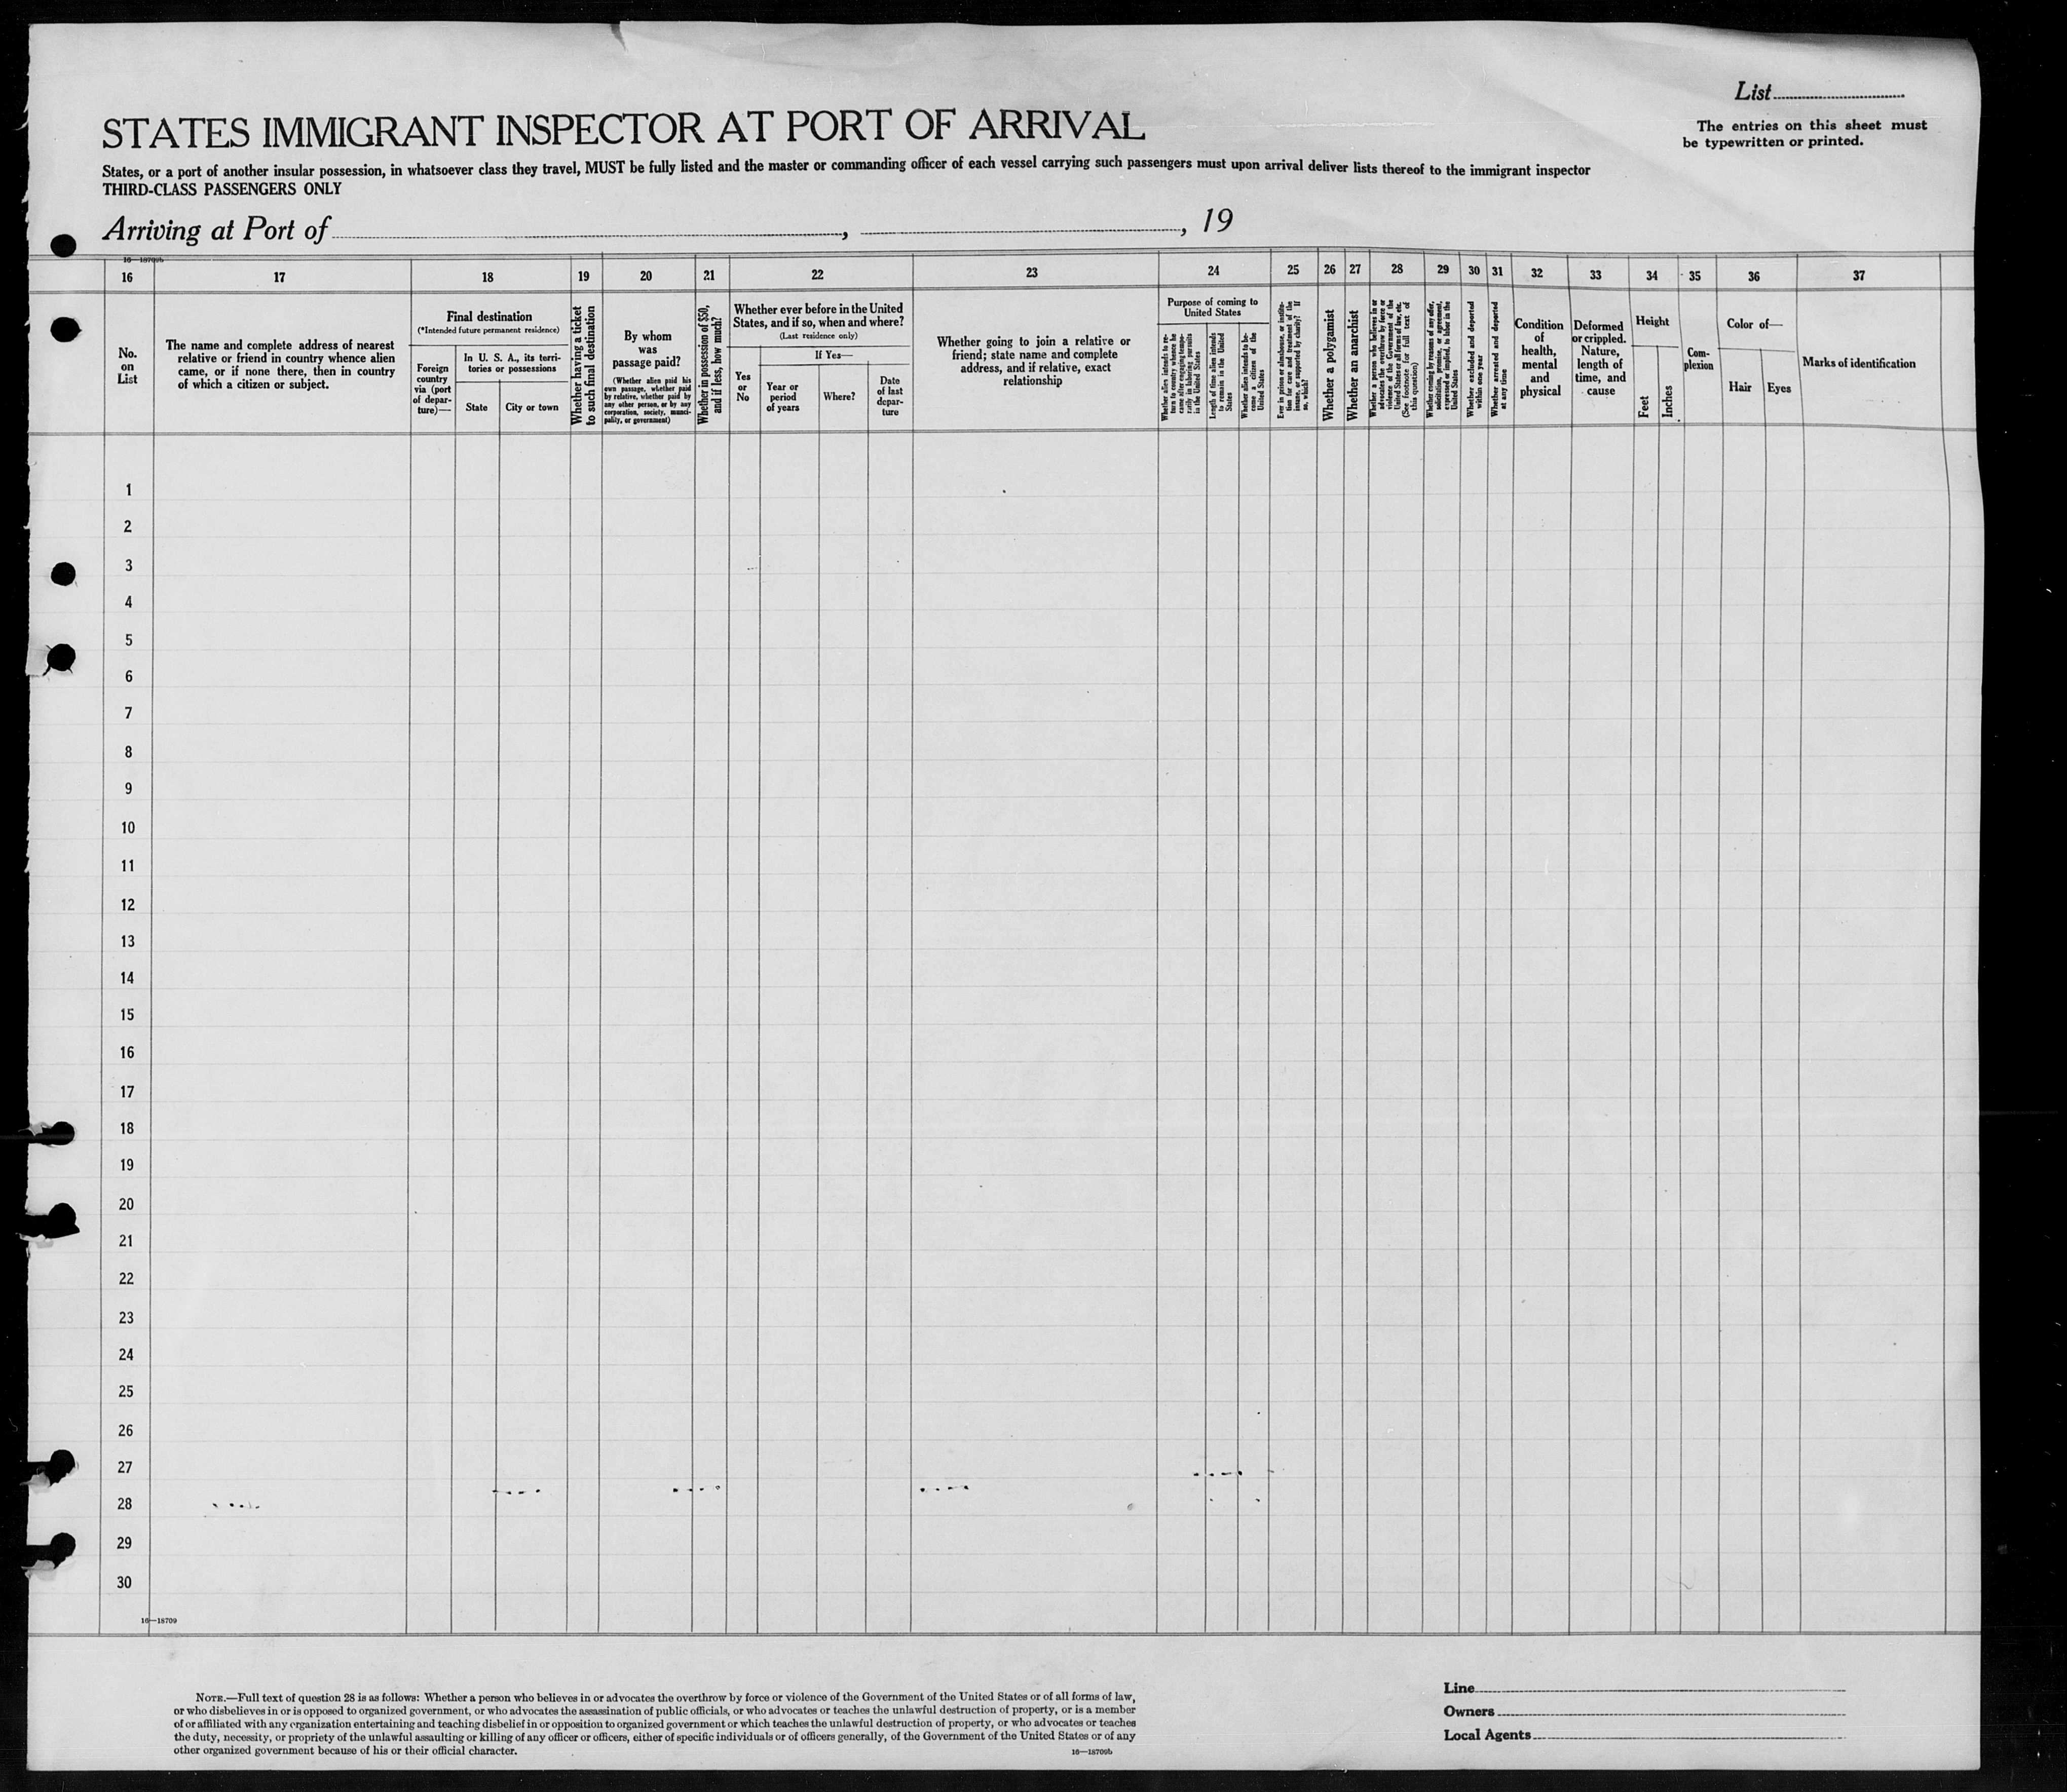 List
The entries on this sheet must
be typewritten or printed.
STATES IMMIGRANT INSPECTOR AT PORT OF ARRIVAL
States, or a port of another insular possession, in whatsoever class they travel, MUST be fully listed and the master or commanding officer of each vessel carrying such passengers must upon arrival deliver lists thereof to the immigrant inspector
THIRD-CLASS PASSENGERS ONLY
Arriving at Port of , , 19
16—18709b
16 17 18 19 20 21 22 23 24 25 26 27 28 29 30 31 32 33 34 35 36 37
No.
on
List
The name and complete address of nearest
relative or friend in country whence alien
came, or if none there, then in country
of which a citizen or subject.
Final destination
(*Intended future permanent residence)
Foreign
country
via (port
of depar-
ture)—
In U. S. A., its terri-
tories or possessions
State
City or town
Whether having a ticket
to such final destination
By whom
was
passage paid?
(Whether alien paid his
own passage, whether paid
by relative, whether paid by
any other person, or by any
corporation, society, munici-
pality, or government)
Whether in possession of $50,
and if less, how much?
Whether ever before in the United
States, and if so, when and where?
(Last residence only)
Yes
or
No
If Yes—
Year or
period
of years
Where?
Date
of last
depar-
ture
Whether going to join a relative or
friend; state name and complete
address, and if relative, exact
relationship
Purpose of coming to
United States
Whether alien intends to re-
turn to country whence he
came after engaging tempo-
rarily in laboring pursuits
in the United States
Length of time alien intends
to remain in the United
States
Whether alien intends to be-
come a citizen of the
United States
Ever in prison or almshouse, or institu-
tion for care and treatment of the
insane, or supported by charity? If
so, which?
Whether a polygamist
Whether an anarchist
Whether a person who believes in or
advocates the overthrow by force or
violence of the Government of the
United States or all forms of law, etc.
(See footnote for full text of
this question)
Whether coming by reasons of any offer,
solicitation, promise, or agreement,
expressed or implied, to labor in the
United States
Whether excluded and deported
within one year
Whether arrested and deported
at any time
Condition
of
health,
mental
and
physical
Deformed
or crippled.
Nature,
length of
time, and
cause
Height
Feet
Inches
Com-
plexion
Color of—
Hair
Eyes
Marks of identification
1
2
3
4
5
6
7
8
9
10
11
12
13
14
15
16
17
18
19
20
21
22
23
24
25
26
27
28
29
30
16—18709
NOTE.—Full text of question 28 is as follows: Whether a person who believes in or advocates the overthrow by force or violence of the Government of the United States or of all forms of law,
or who disbelieves in or is opposed to organized government, or who advocates the assassination of public officials, or who advocates or teaches the unlawful destruction of property, or is a member
of or affiliated with any organization entertaining and teaching disbelief in or opposition to organized government or which teaches the unlawful destruction of property, or who advocates or teaches
the duty, necessity, or propriety of the unlawful assaulting or killing of any officer or officers, either of specific individuals or of officers generally, of the Government of the United States or of any
other organized government because of his or their official character.
16—18709b
Line
Owners
Local Agents